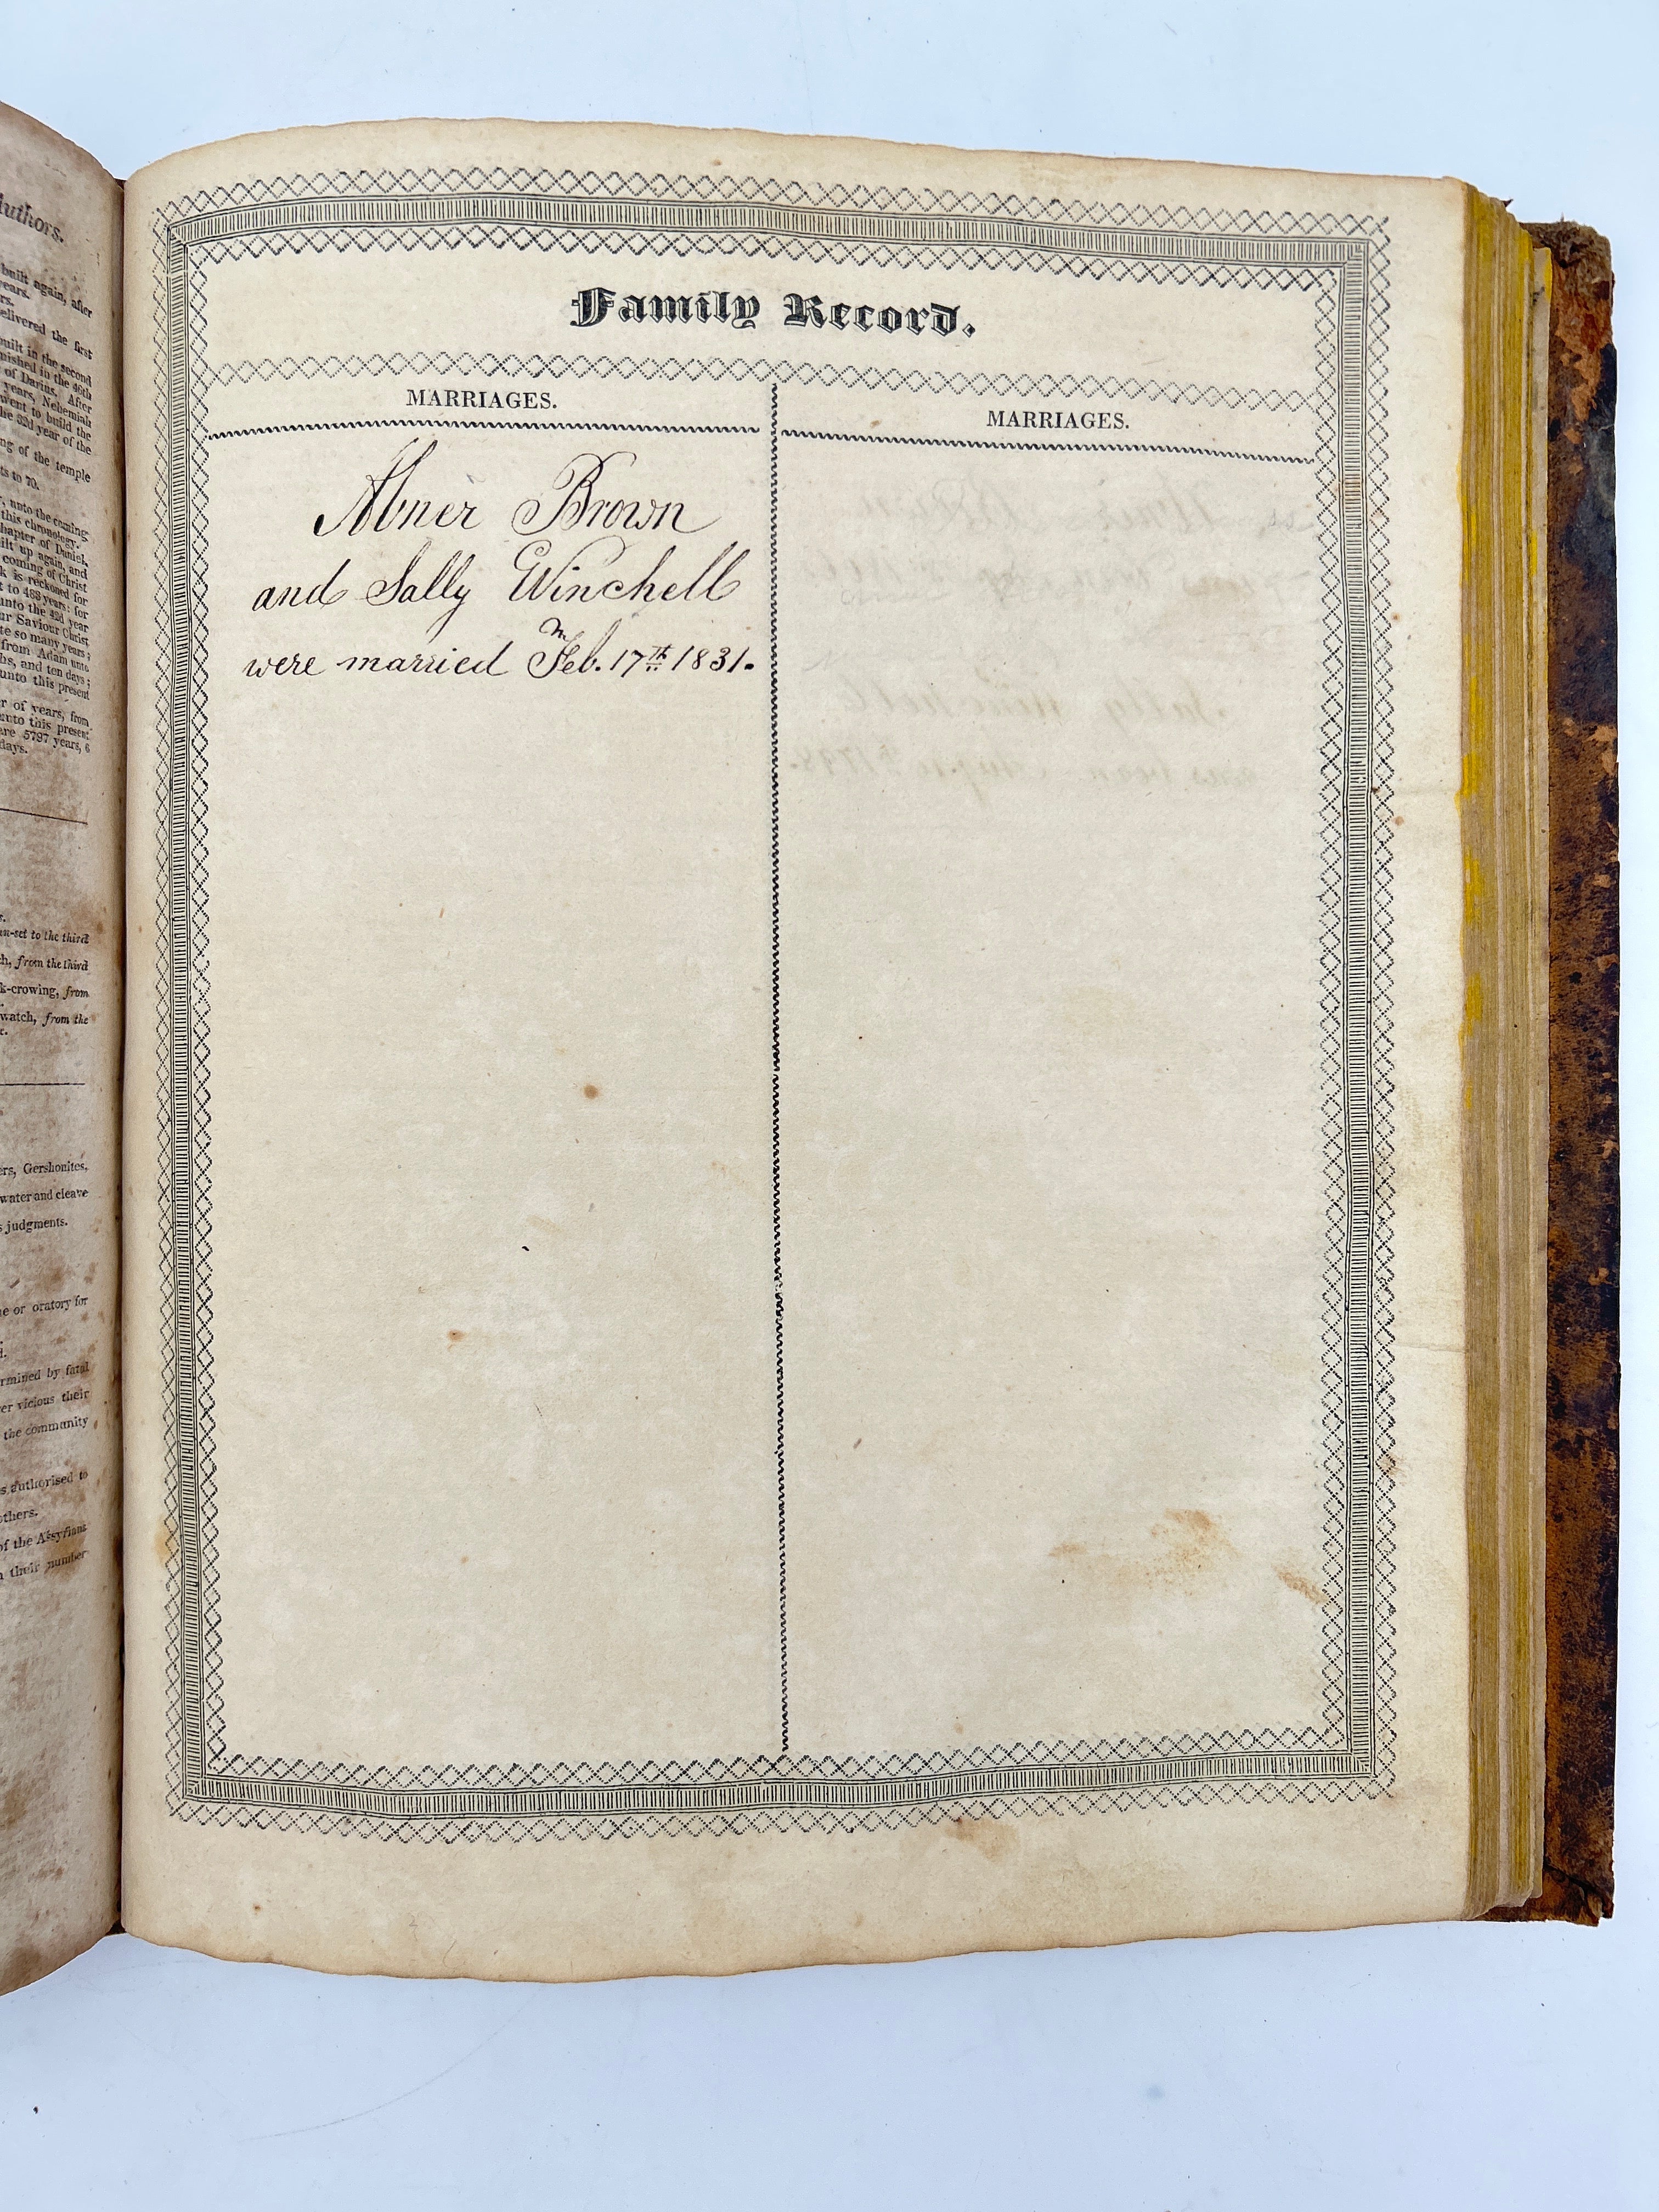 Authors.
built again, after
years.
delivered the first
built in the second
of Darius. After
years, Nehemiah
went to build the
the 32d year of the
ng of the temple
ts to 70.
, unto the coming
this chronology.
chapter of Daniel,
ilt up again, and
coming of Christ
k is reckoned for
t to 483 years: for
unto the 42d year
ur Saviour Christ
te so many years;
from Adam unto
hs, and ten days;
unto this present
r of years, from
unto this present
are 5797 years, 6
days.
un-set to the third
h, from the third
k-crowing, from
watch, from the
ers, Gershonites,
water and cleave
s judgments.
ne or oratory for
rmined by fatal
er vicious their
the community
s authorised to
others.
of the Assyrians
n their number
Family Record.
MARRIAGES.
Abner Brown
and Sally Winchell
were married Feb. 17th 1831.
MARRIAGES.